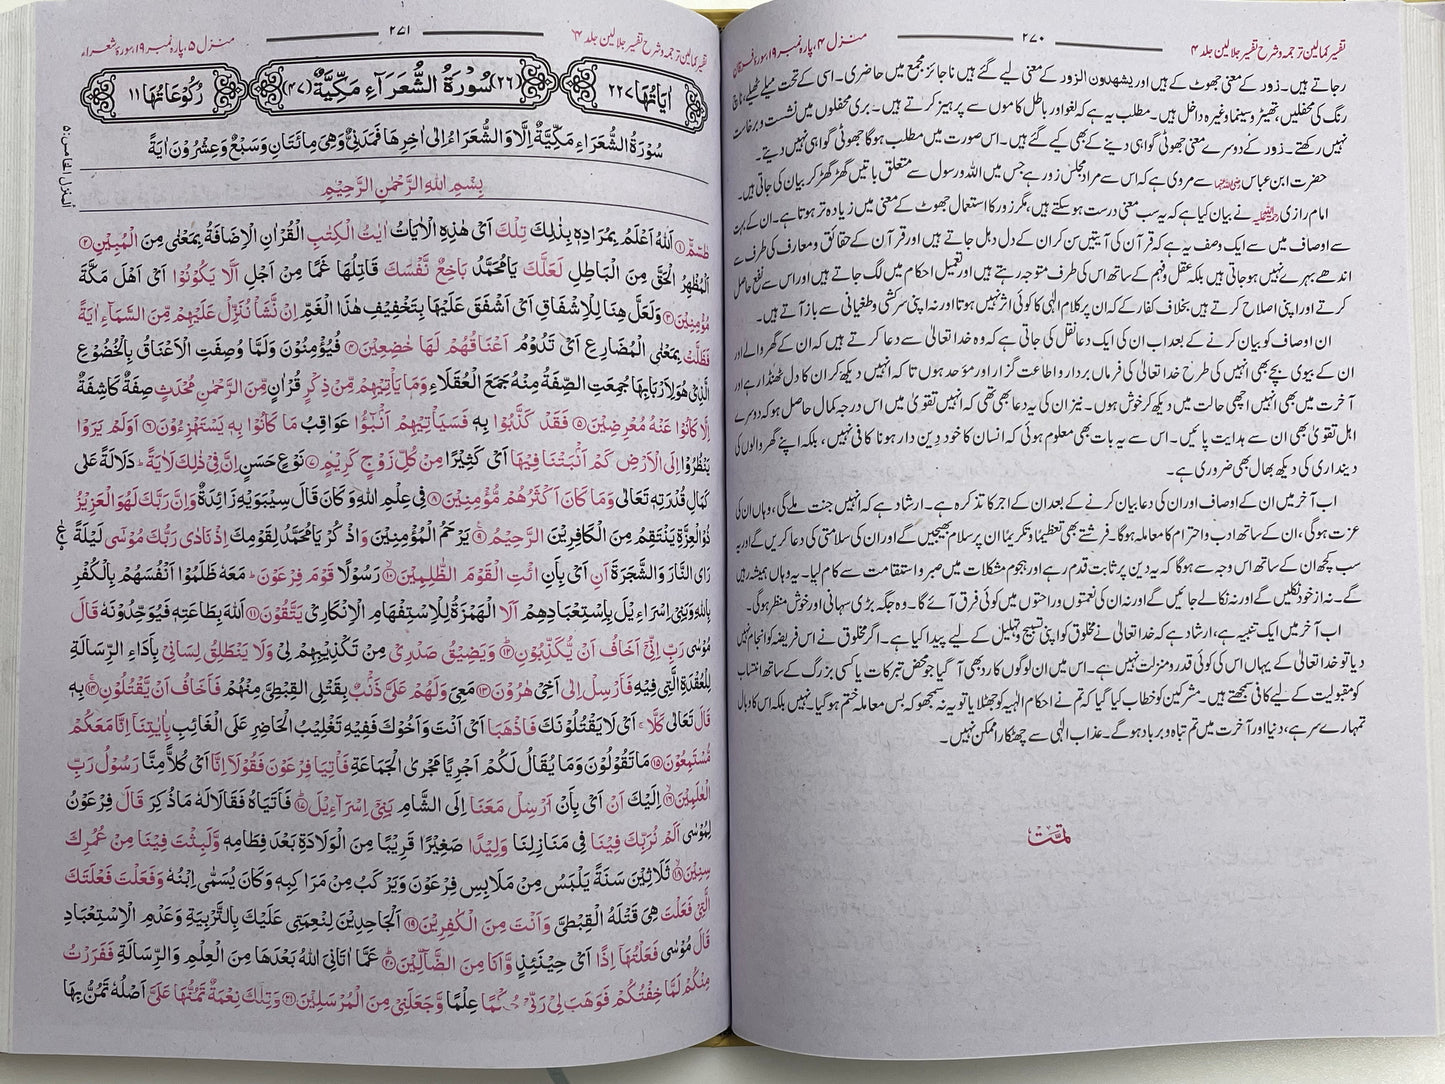 تفسیر کمالین ترجمہ و شرح تفسیر جلالین جلد ۴
۲۷۰
منزل ۴، پارہ نمبر ۱۹، سورۃ فرقان
رجاتے ہیں۔ زور کے معنی جھوٹ کے ہیں اور یشھدون الزور کے معنی لیے گئے ہیں ناجائز مجمع میں حاضری۔ اسی کے تحت میلے ٹھیلے، ناچ
رنگ کی محفلیں، تھیٹر و سینما وغیرہ داخل ہیں۔ مطلب یہ ہے کہ لغو اور باطل کاموں سے پرہیز کرتے ہیں۔ بری محفلوں میں نشست و برخاست
نہیں رکھتے۔ زور کے دوسرے معنی جھوٹی گواہی دینے کے بھی کیے گئے ہیں۔ اس صورت میں مطلب ہوگا جھوٹی گواہی نہیں دیتے۔
حضرت ابن عباس رضی اللہ عنہما سے مروی ہے کہ اس سے مراد مجلس زور ہے جس میں اللہ و رسول سے متعلق باتیں گھڑ گھڑ کر بیان کی جاتی ہیں۔
امام رازی رحمۃ اللہ علیہ نے بیان کیا ہے کہ یہ سب معنی درست ہوسکتے ہیں، مگر زور کا استعمال جھوٹ کے معنی میں زیادہ تر ہوتا ہے۔ ان کے بہت
سے اوصاف میں سے ایک وصف یہ ہے کہ قرآن کی آیتیں سن کر ان کے دل دہل جاتے ہیں اور قرآن کے حقائق و معارف کی طرف سے
اندھے بہرے نہیں ہوجاتی ہیں بلکہ عقل و فہم کے ساتھ اس کی طرف متوجہ رہتے ہیں اور تعمیل احکام میں لگ جاتے ہیں اور اس سے نفع حاصل
کرتے اور اپنی اصلاح کرتے ہیں بخلاف کفار کے کہ ان پر کلام الٰہی کا کوئی اثر نہیں ہوتا اور نہ اپنی سرکشی و طغیانی سے باز آتے ہیں۔
ان اوصاف کو بیان کرنے کے بعد اب ان کی ایک دعا نقل کی جاتی ہے کہ وہ خدا تعالیٰ سے دعا کرتے ہیں کہ ان کے گھر والے اور
ان کے بیوی بچے بھی انہیں کی طرح خدا تعالیٰ کی فرماں بردار و اطاعت گزار اور مؤحد ہوں تا کہ انہیں دیکھ کر ان کا دل ٹھنڈا رہے اور
آخرت میں بھی انہیں اچھی حالت میں دیکھ کر خوش ہوں۔ نیز ان کی یہ دعا بھی تھی کہ انہیں تقویٰ میں اس درجہ کمال حاصل ہو کہ دوسرے
اہل تقویٰ بھی ان سے ہدایت پائیں۔ اس سے یہ بات بھی معلوم ہوئی کہ انسان کا خود دین دار ہونا کافی نہیں، بلکہ اپنے گھر والوں کی
دینداری کی دیکھ بھال بھی ضروری ہے۔
اب آخر میں ان کے اوصاف اور ان کی دعا بیان کرنے کے بعد ان کے اجر کا تذکرہ ہے۔ ارشاد ہے کہ انہیں جنت ملے گی، وہاں ان کی
عزت ہوگی، ان کے ساتھ ادب و احترام کا معاملہ ہوگا۔ فرشتے بھی تعظیماً و تکریماً ان پر سلام بھیجیں گے اور ان کی سلامتی کی دعا کریں گے اور یہ
سب کچھ ان کے ساتھ اس وجہ سے ہوگا کہ یہ دین پر ثابت قدم رہے اور ہجوم مشکلات میں صبر و استقامت سے کام لیا۔ یہ وہاں ہمیشہ رہیں
گے۔ نہ از خود نکلیں گے اور نہ نکالے جائیں گے اور نہ ان کی نعمتوں و راحتوں میں کوئی فرق آئے گا۔ وہ جگہ بڑی سہانی اور خوش منظر ہوگی۔
اب آخر میں ایک تنبیہ ہے، ارشاد ہے کہ خدا تعالیٰ نے مخلوق کو اپنی تسبیح و تہلیل کے لیے پیدا کیا ہے۔ اگر مخلوق نے اس فریضہ کو انجام نہیں
دیا تو خدا تعالیٰ کے یہاں اس کی کوئی قدر و منزلت نہیں ہے۔ اس میں ان لوگوں کا رد بھی آگیا جو محض تبرکات یا کسی بزرگ کے ساتھ انتساب
کو مقبولیت کے لیے کافی سمجھتے ہیں۔ مشرکین کو خطاب کیا گیا کہ تم نے احکام الٰہیہ کو جھٹلایا تو یہ نہ سمجھو کہ بس معاملہ ختم ہوگیا۔ نہیں بلکہ اس کا وبال
تمہارے سر ہے، دنیا اور آخرت میں تم تباہ و برباد ہوگے۔ عذاب الٰہی سے چھٹکارا ممکن نہیں۔
تمّت
تفسیر کمالین ترجمہ و شرح تفسیر جلالین جلد ۴
۲۷۱
منزل ۵، پارہ نمبر ۱۹، سورۃ شعراء
اٰیَاتُهَا ۲۲۷
(۲۶) سُوْرَةُ الشُّعَرَآءِ مَكِّيَّةٌ (۴۷)
رُكُوْعَاتُهَا ۱۱
المنزل الخامس: ۵
سُوْرَةُ الشُّعَرَاءِ مَكِّيَّةٌ اِلَّا وَالشُّعَرَاءُ اِلٰى اٰخِرِهَا فَمَدَنِيٌّ وَهِيَ مِائَتَانِ وَسَبْعٌ وَعِشْرُوْنَ اٰيَةً
بِسْمِ اللهِ الرَّحْمٰنِ الرَّحِيْمِ
طٰسٓمّٓ ۱ اَللهُ اَعْلَمُ بِمُرَادِهِ بِذٰلِكَ تِلْكَ اَيْ هٰذِهِ الْاٰيَاتُ اٰيٰتُ الْكِتٰبِ الْقُرْاٰنِ الْاِضَافَةُ بِمَعْنٰى مِنَ الْمُبِيْنِ ۲
الْمُظْهِرُ الْحَقَّ مِنَ الْبَاطِلِ لَعَلَّكَ يَا مُحَمَّدُ بَاخِعٌ نَّفْسَكَ قَاتِلُهَا غَمًّا مِنْ اَجْلِ اَلَّا يَكُوْنُوْا اَيْ اَهْلَ مَكَّةَ
مُؤْمِنِيْنَ ۳ وَلَعَلَّ هِنَا لِلْاِشْفَاقِ اَيْ اَشْفِقْ عَلَيْهَا بِتَخْفِيْفِ هٰذَا الْغَمِّ اِنْ نَّشَأْ نُنَزِّلْ عَلَيْهِمْ مِّنَ السَّمَآءِ اٰيَةً
فَظَلَّتْ بِمَعْنَى الْمُضَارِعِ اَيْ تَدُوْمُ اَعْنَاقُهُمْ لَهَا خٰضِعِيْنَ ۴ فَيُؤْمِنُوْنَ وَلَمَّا وُصِفَتِ الْاَعْنَاقُ بِالْخُضُوْعِ
الَّذِيْ هُوَ لِاَرْبَابِهَا جُمِعَتِ الصِّفَةُ مِنْهُ جَمْعَ الْعُقَلَاءِ وَمَا يَأْتِيْهِمْ مِّنْ ذِكْرٍ قُرْاٰنٍ مِّنَ الرَّحْمٰنِ مُحْدَثٍ صِفَةٌ كَاشِفَةٌ
اِلَّا كَانُوْا عَنْهُ مُعْرِضِيْنَ ۵ فَقَدْ كَذَّبُوْا بِهِ فَسَيَأْتِيْهِمْ اَنْۢبٰٓؤُا عَوَاقِبُ مَا كَانُوْا بِهٖ يَسْتَهْزِءُوْنَ ۶ اَوَلَمْ يَرَوْا
يَنْظُرُوْا اِلَى الْاَرْضِ كَمْ اَنْۢبَتْنَا فِيْهَا اَيْ كَثِيْرًا مِنْ كُلِّ زَوْجٍ كَرِيْمٍ ۷ نَوْعٍ حَسَنٍ اِنَّ فِيْ ذٰلِكَ لَاٰيَةً دَلَالَةً عَلٰى
كَمَالِ قُدْرَتِهِ تَعَالٰى وَمَا كَانَ اَكْثَرُهُمْ مُّؤْمِنِيْنَ ۸ فِيْ عِلْمِ اللهِ وَكَانَ قَالَ سِيْبَوَيْهِ زَائِدَةٌ وَاِنَّ رَبَّكَ لَهُوَ الْعَزِيْزُ
ذُو الْعِزَّةِ يَنْتَقِمُ مِنَ الْكَافِرِيْنَ الرَّحِيْمُ ۹ يَرْحَمُ الْمُؤْمِنِيْنَ وَاذْكُرْ يَا مُحَمَّدُ لِقَوْمِكَ اِذْ نَادٰى رَبُّكَ مُوْسٰٓى لَيْلَةً
رَاى النَّارَ وَالشَّجَرَةَ اَنِ اَيْ بِأَنِ ائْتِ الْقَوْمَ الظّٰلِمِيْنَ ۱۰ رَسُوْلًا قَوْمَ فِرْعَوْنَ مَعَهُ ظَلَمُوْا اَنْفُسَهُمْ بِالْكُفْرِ
بِاللهِ وَبَنِيْ اِسْرَاءِيْلَ بِاسْتِعْبَادِهِمْ اَلَا الْهَمْزَةُ لِلْاِسْتِفْهَامِ الْاِنْكَارِيِّ يَتَّقُوْنَ ۱۱ اللهَ بِطَاعَتِهِ فَيُوَحِّدُوْنَهُ قَالَ
مُوْسٰى رَبِّ اِنِّيْٓ اَخَافُ اَنْ يُّكَذِّبُوْنِ ۱۲ وَيَضِيْقُ صَدْرِيْ مِنْ تَكْذِيْبِهِمْ لِيْ وَلَا يَنْطَلِقُ لِسَانِيْ بِأَدَاءِ الرِّسَالَةِ
لِلْعُقْدَةِ الَّتِيْ فِيْهِ فَاَرْسِلْ اِلٰى اَخِيْ هٰرُوْنَ ۱۳ مَعِيَ وَلَهُمْ عَلَيَّ ذَنْۢبٌ بِقَتْلِي الْقِبْطِيَّ مِنْهُمْ فَاَخَافُ اَنْ يَّقْتُلُوْنِ ۱۴ بِهِ
قَالَ تَعَالٰى كَلَّا اَيْ لَا يَقْتُلُوْنَكَ فَاذْهَبَا اَيْ اَنْتَ وَاَخُوْكَ فَفِيْهِ تَغْلِيْبُ الْحَاضِرِ عَلَى الْغَائِبِ بِاٰيٰتِنَآ اِنَّا مَعَكُمْ
مُّسْتَمِعُوْنَ ۱۵ مَا تَقُوْلُوْنَ وَمَا يُقَالُ لَكُمْ اُجْرِيَا مَجْرَى الْجَمَاعَةِ فَأْتِيَا فِرْعَوْنَ فَقُوْلَآ اِنَّا اَيْ كُلًّا مِّنَّا رَسُوْلُ رَبِّ
الْعٰلَمِيْنَ ۱۶ اِلَيْكَ اَنْ اَيْ بِأَنْ اَرْسِلْ مَعَنَا اِلَى الشَّامِ بَنِيْٓ اِسْرَآءِيْلَ ۱۷ فَأَتَيَاهُ فَقَالَا لَهُ مَا ذُكِرَ قَالَ فِرْعَوْنُ
لِمُوْسٰى اَلَمْ نُرَبِّكَ فِيْنَا فِيْ مَنَازِلِنَا وَلِيْدًا صَغِيْرًا قَرِيْبًا مِنَ الْوِلَادَةِ بَعْدَ فِطَامِهِ وَّلَبِثْتَ فِيْنَا مِنْ عُمُرِكَ
سِنِيْنَ ۱۸ ثَلَاثِيْنَ سَنَةً يَلْبَسُ مِنْ مَلَابِسِ فِرْعَوْنَ وَيَرْكَبُ مِنْ مَرَاكِبِهِ وَكَانَ يُسَمّٰى اِبْنُهُ وَفَعَلْتَ فَعْلَتَكَ
الَّتِيْ فَعَلْتَ هِيَ قَتْلُهُ الْقِبْطِيَّ وَاَنْتَ مِنَ الْكٰفِرِيْنَ ۱۹ اَلْجَاحِدِيْنَ لِنِعْمَتِيْ عَلَيْكَ بِالتَّرْبِيَةِ وَعَدَمِ الْاِسْتِعْبَادِ
قَالَ مُوْسٰى فَعَلْتُهَآ اِذًا اَيْ حِيْنَئِذٍ وَّاَنَا مِنَ الضَّآلِّيْنَ ۲۰ عَمَّا اٰتَانِيَ اللهُ بَعْدَهَا مِنَ الْعِلْمِ وَالرِّسَالَةِ فَفَرَرْتُ
مِنْكُمْ لَمَّا خِفْتُكُمْ فَوَهَبَ لِيْ رَبِّيْ حُكْمًا عِلْمًا وَّجَعَلَنِيْ مِنَ الْمُرْسَلِيْنَ ۲۱ وَتِلْكَ نِعْمَةٌ تَمُنُّهَا عَلَيَّ اَصْلُهُ تَمُنُّ بِهَا